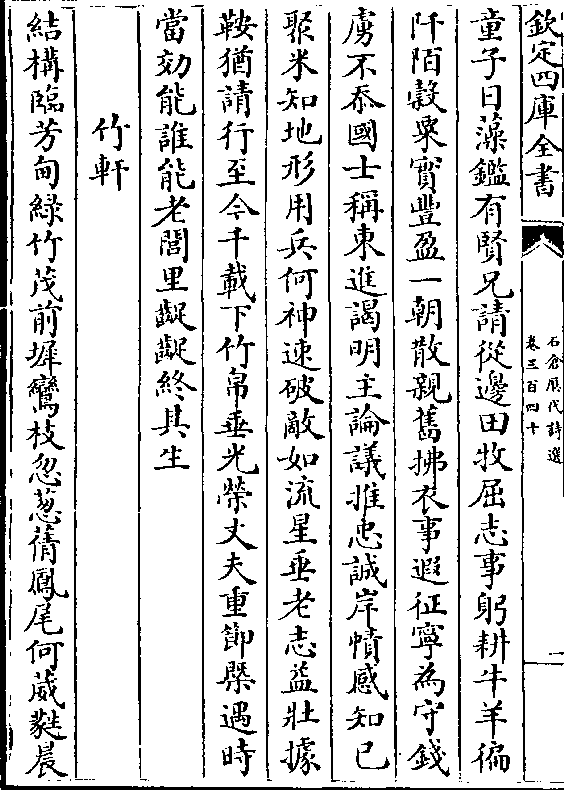 欽定四庫全書
石倉歷代詩選
卷三百四十
一
童子日藻鑑有賢兄請從邊田牧屈志事躬耕牛羊徧
阡陌穀粟實豐盈一朝散親舊拂衣事遐征寧為守錢
虜不忝國士稱東進謁明主論議推忠誠岸幘感知己
聚米知地形用兵何神速破敵如流星垂老志益壯據
鞍猶請行至今千載下竹帛垂光榮丈夫重節槩遇時
當効能誰能老閭里齪齪終其生
竹軒
結構臨芳甸綠竹茂前墀鸞枝忽蔥蒨鳳尾何葳蕤晨